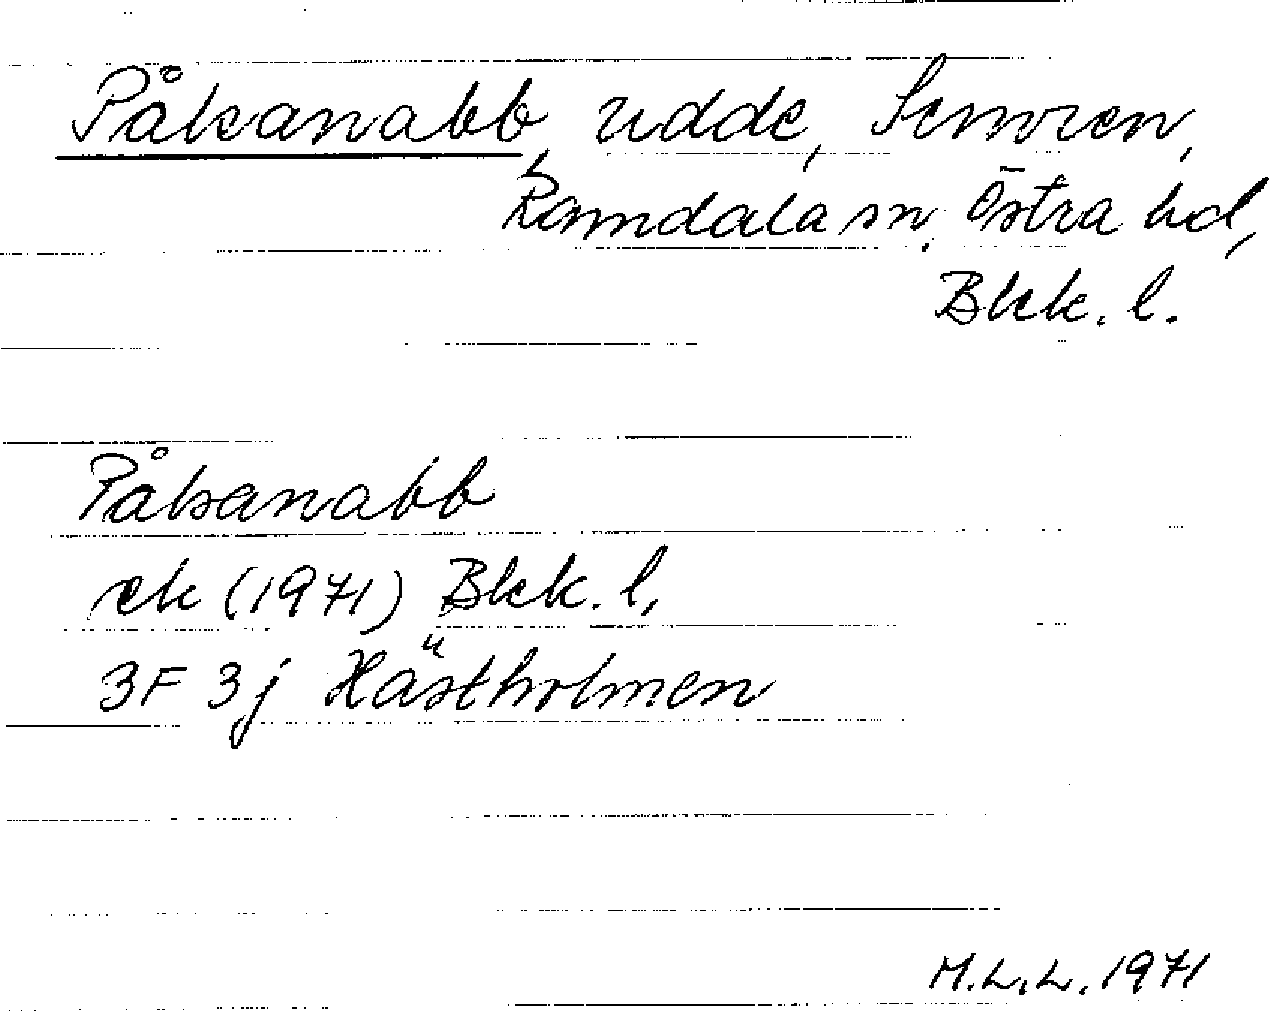 Påkanabb, udde, Senoren,
Ramdala sn, Östra hd,
Blek. l.
Påkanabb
ek (1971) Blek. l,
3F 3j Hästholmen
M.L.L. 1971